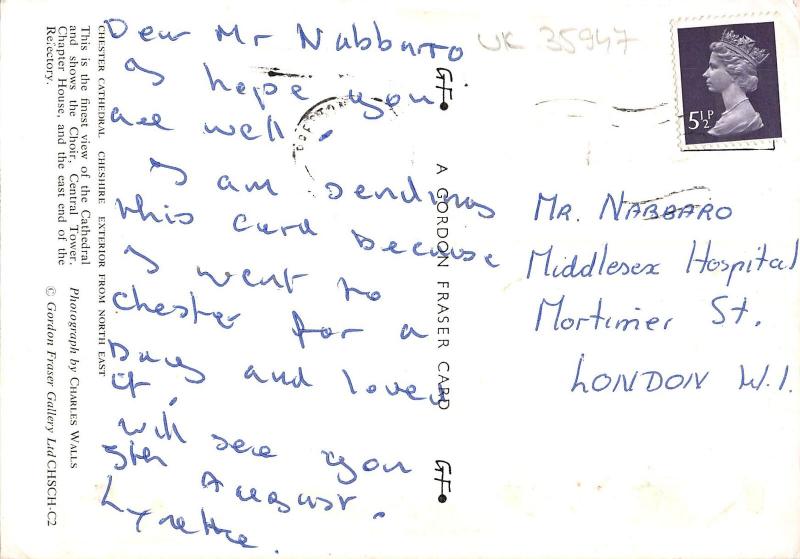 Dear Mr Nabbarro
I hope you
are well.
I am sending
this card because
I went to
chester for a
Day and loved
it.
will see you
5th August.
Lynette.
UK 35947
5½P
MR. NABBARO
Middlesex Hospital
Mortimer St.
LONDON W.1.
GF
A GORDON FRASER CARD
GF
CHESTER CATHEDRAL, CHESHIRE EXTERIOR FROM NORTH EAST
This is the finest view of the Cathedral
and shows the Choir, Central Tower,
Chapter House, and the east end of the
Refectory.
Photograph by CHARLES WALLS
© Gordon Fraser Gallery Ltd CHSCH-C2